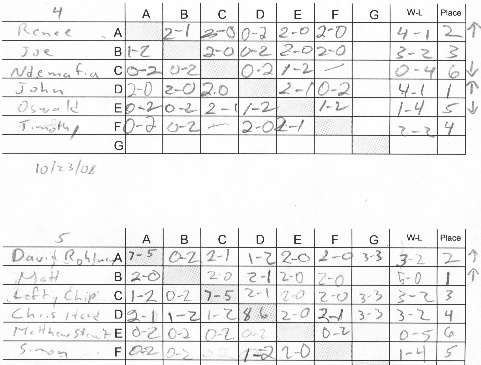 4 A B C D E F G W-L Place
Renee A 2-1 2-0 0-2 2-0 2-0 4-1 2 ↑
Joe B 1-2 2-0 0-2 2-0 2-0 3-2 3
Ndematia C 0-2 0-2 0-2 1-2 — 0-4 6 ↓
John D 2-0 2-0 2-0 2-1 0-2 4-1 1 ↑
Oswald E 0-2 0-2 2-1 1-2 1-2 1-4 5 ↓
Timothy F 0-2 0-2 — 2-0 2-1 2-2 4
G
10/23/08
5 A B C D E F G W-L Place
David A 7-5 0-2 2-1 1-2 2-0 2-0 3-3 3-2 2 ↑
Matt B 2-0 2-0 2-1 2-0 2-0 5-0 1 ↑
Lefty Chip C 1-2 0-2 7-5 2-1 2-0 2-0 3-3 3-2 3
Chris D 2-1 1-2 1-2 8-6 2-0 2-1 3-3 3-2 4
Matthew E 0-2 0-2 0-2 0-2 0-2 0-5 6
Simon F 0-2 0-2 0-2 1-2 2-0 1-4 5